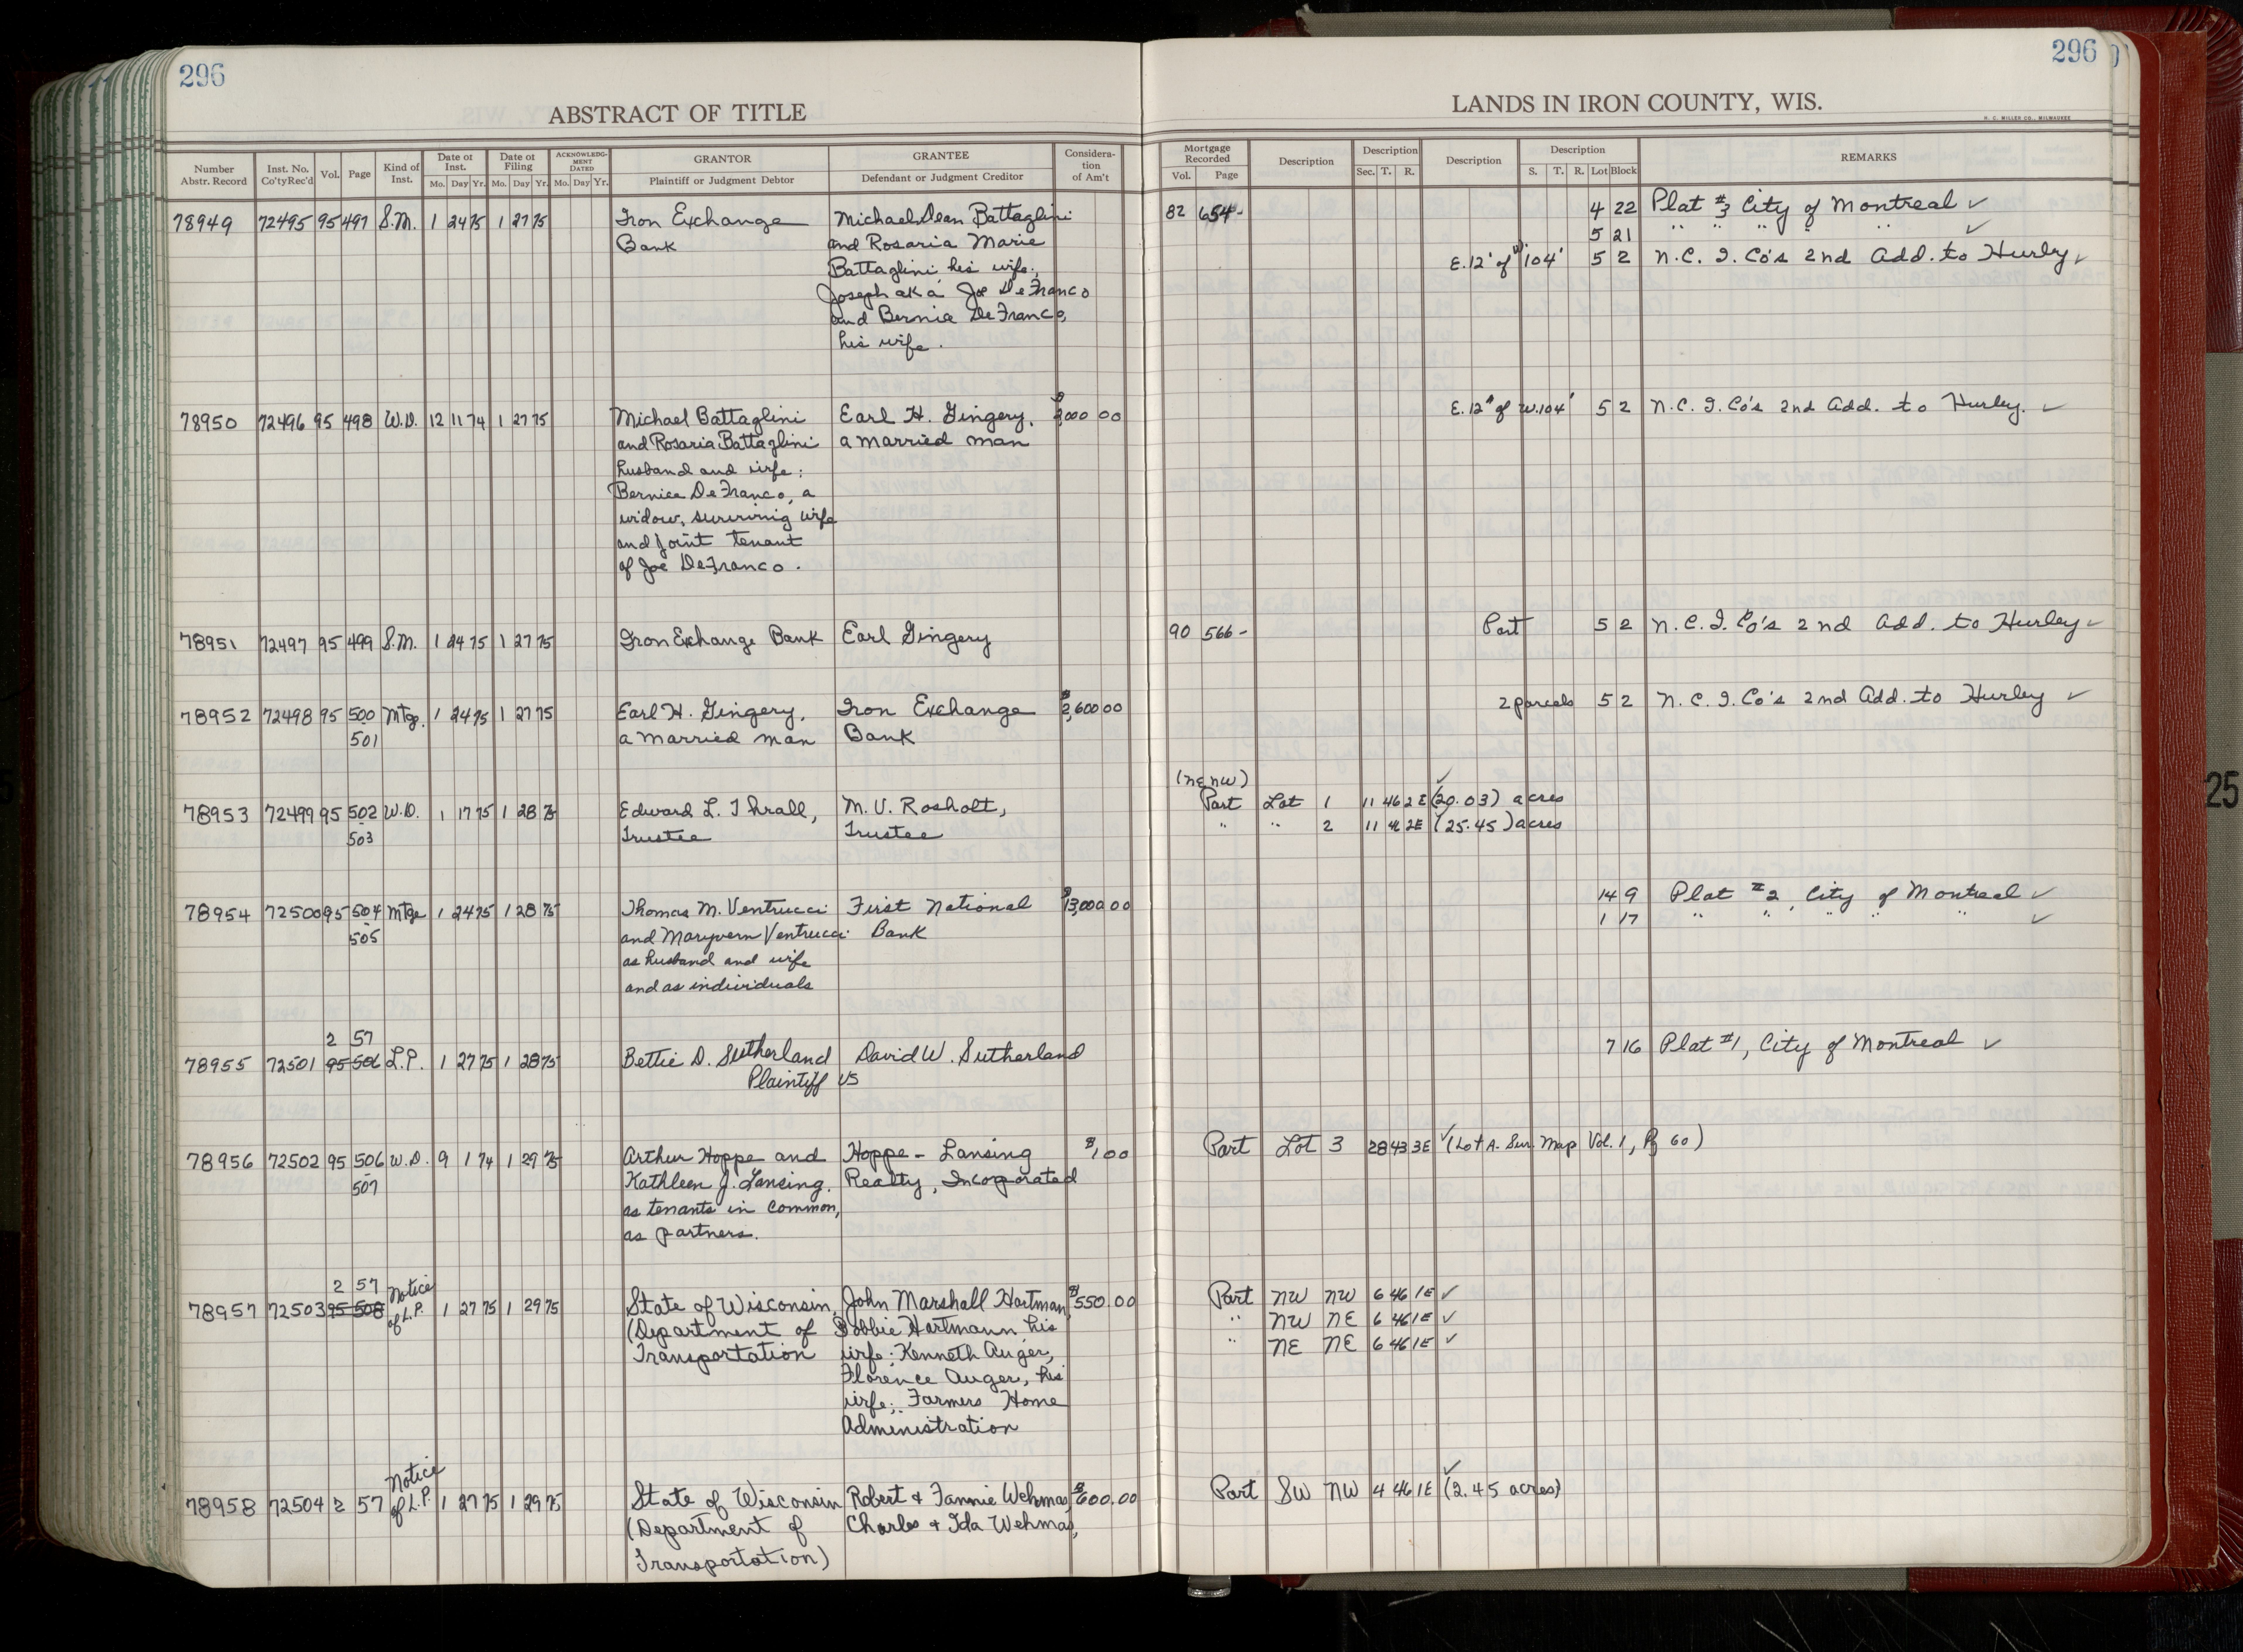 296
296
ABSTRACT OF TITLE
LANDS IN IRON COUNTY, WIS.
H. C. MILLER CO., MILWAUKEE
Number Abstr. Record
Inst. No. Co'tyRec'd
Vol.
Page
Kind of Inst.
Date of Inst. Mo. Day Yr.
Date of Filing Mo. Day Yr.
ACKNOWLEDG-MENT DATED Mo. Day Yr.
GRANTOR Plaintiff or Judgment Debtor
GRANTEE Defendant or Judgment Creditor
Considera-tion of Am't
Mortgage Recorded Vol. Page
Description
Description Sec. T. R.
Description
Description S. T. R. Lot Block
REMARKS
78949 72495 95 497 S.M. 1 24 75 1 27 75 Iron Exchange Michael Dean Battaglini 82 654- 4 22 Plat #3 City of Montreal ✓
Bank and Rosaria Marie 5 21 " " " " " ✓
Battaglini his wife; E. 12' of W 104' 5 2 N.C. I. Co's 2nd Add. to Hurley ✓
Joseph aka Joe DeFranco
and Bernice DeFranco,
his wife.
78950 72496 95 498 W.D. 12 11 74 1 27 75 Michael Battaglini Earl H. Gingery, 000 00 E. 12' of W. 104' 5 2 N.C. I. Co's 2nd Add. to Hurley. ✓
and Rosaria Battaglini a married man
husband and wife;
Bernice DeFranco, a
widow, surviving wife
and joint tenant
of Joe DeFranco.
78951 72497 95 499 S.M. 1 24 75 1 27 75 Iron Exchange Bank Earl Gingery 90 566- Part 5 2 N.C. I. Co's 2nd Add. to Hurley ✓
78952 72498 95 500 Mtge. 1 24 75 1 27 75 Earl H. Gingery, Iron Exchange $2,600 00 2 parcels 5 2 N.C. I. Co's 2nd Add. to Hurley ✓
501 a married man Bank
(NE NW) ✓
78953 72499 95 502 W.D. 1 17 75 1 28 75 Edward L. Thrall, M. V. Rosholt, Part Lot 1 11 46 2E (20.03) acres
503 Trustee Trustee " " 2 11 46 2E (25.45) acres
78954 72500 95 504 Mtge 1 24 75 1 28 75 Thomas M. Ventrucci First National $13,000 00 14 9 Plat #2, City of Montreal ✓
505 and Maryvern Ventrucci Bank 1 17 " " " " " ✓
as husband and wife
and as individuals
2 57
78955 72501 95 506 L.P. 1 27 75 1 28 75 Bettie D. Sutherland David W. Sutherland 7 16 Plat #1, City of Montreal ✓
Plaintiff vs
78956 72502 95 506 W.D. 9 1 74 1 29 75 Arthur Hoppe and Hoppe-Lansing $1.00 Part Lot 3 28 43 3E ✓ (Lot A. Sur. Map Vol. 1, Pg 60)
507 Kathleen J. Lansing. Realty, Incorporated
as tenants in common,
as partners.
2 57 Notice
78957 72503 95 508 of L.P. 1 27 75 1 29 75 State of Wisconsin, John Marshall Hartman, $550.00 Part NW NW 6 46 1E ✓
(Department of Bobbie Hartmann his " NW NE 6 46 1E ✓
Transportation wife; Kenneth Auger, " NE NE 6 46 1E ✓
Florence Auger, his
wife; Farmers Home
Administration
Notice
78958 72504 2 57 of L.P. 1 27 75 1 29 75 State of Wisconsin Robert & Fannie Wehmas, $600.00 Part SW NW 4 46 1E ✓ (2.45 acres)
(Department of Charles & Ida Wehmas,
Transportation)
25